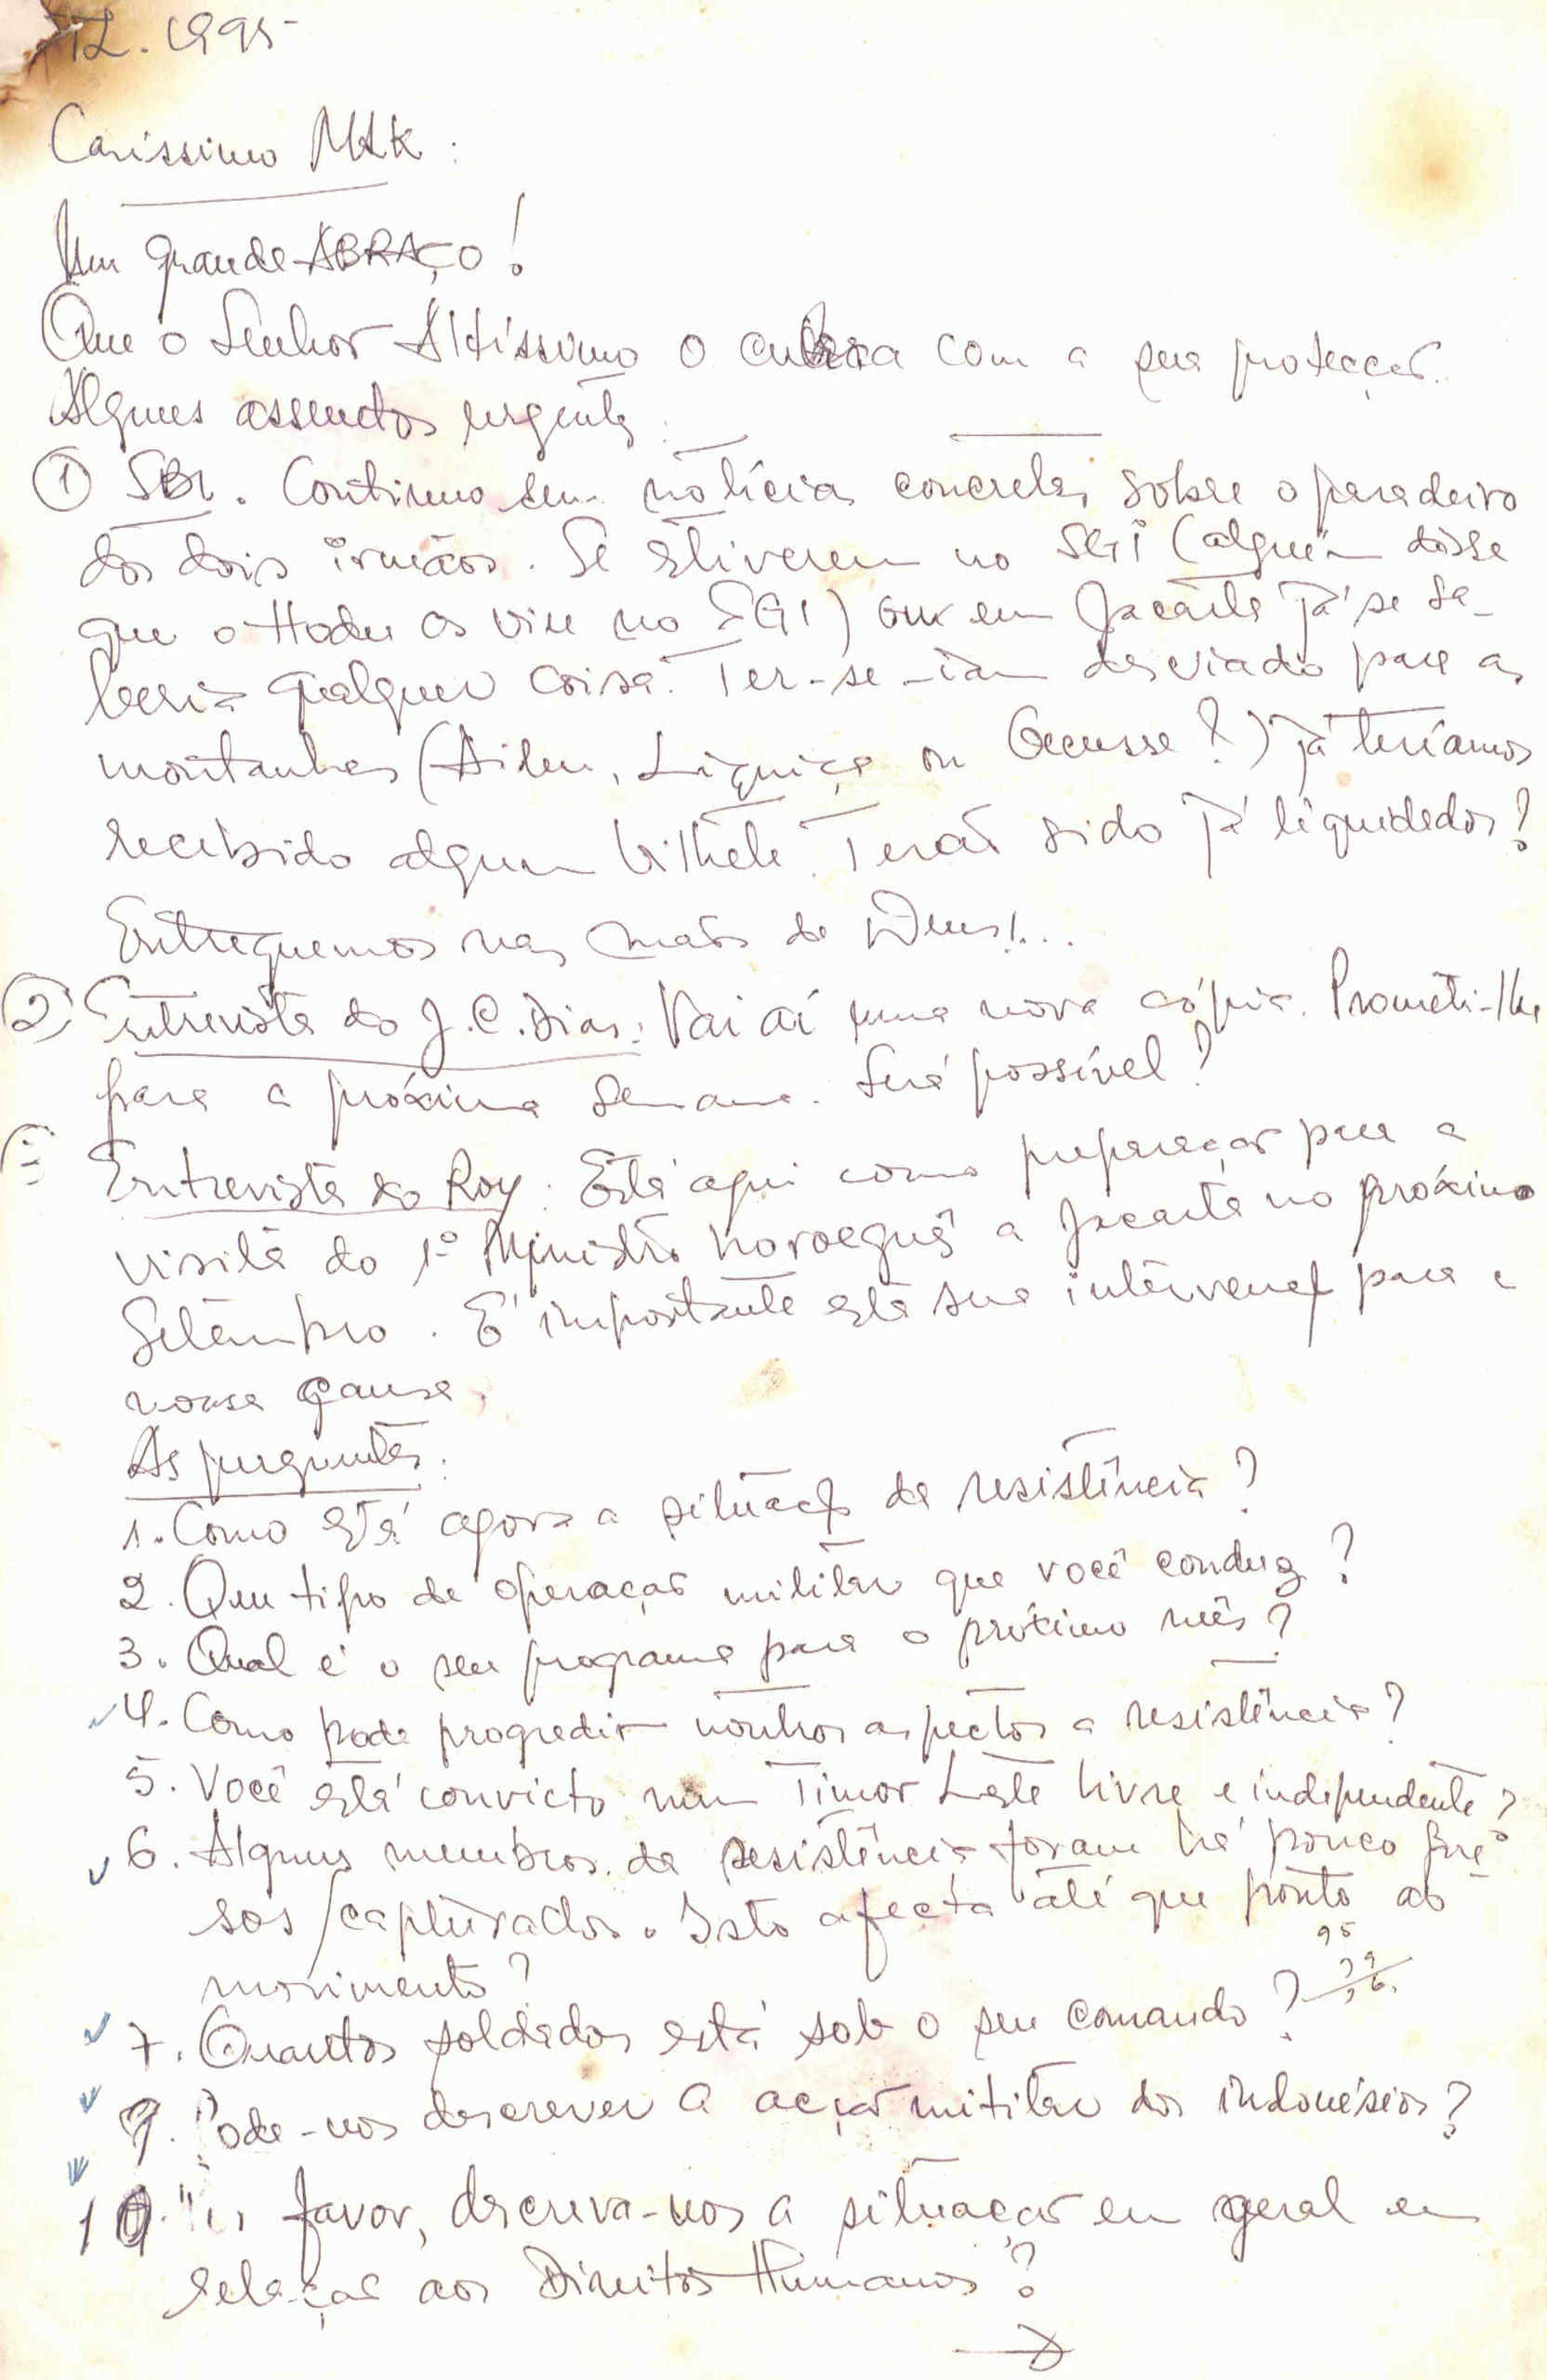 12.1995
Caríssimo MLK:
Um grande ABRAÇO!
Que o Senhor Altíssimo o cubra com a sua protecção.
Alguns assuntos urgentes:
① SBR. Continuo sem notícias concretas sobre o paradeiro
dos dois irmãos. Se estiverem no SGI (alguém disse
que o Hodu os viu no SGI) ou em Jacarta já se sa-
beria qualquer coisa. Ter-se-iam desviado para as
montanhas (Aileu, Liquiça ou Oecusse?) já teríamos
recebido algum bilhete. Terão sido já liquidados?
Entreguemos nas mãos de Deus!...
② Entrevista do J.C. Dias: Vai aí uma nova cópia. Prometi-lhe
para a próxima semana. Será possível?
Entrevista do Roy: Está aqui como preparação para a
visita do 1º Ministro norueguês a Jacarta no próximo
Setembro. É importante esta sua intervenção para a
nossa causa.
As perguntas:
1. Como está agora a situação da resistência?
2. Que tipo de operação militar que você conduz?
3. Qual é o seu programa para o próximo mês?
4. Como pode progredir noutros aspectos a resistência?
5. Você está convicto num Timor Leste livre e independente?
6. Alguns membros da resistência foram há pouco pre-
sos/capturados. Isto afecta até que ponto ao
movimento?
95
7. Quantos soldados está sob o seu comando?
9. Pode-nos descrever a acção militar dos indonésios?
10. favor, descreva-nos a situação em geral em
relação aos Direitos Humanos?
→